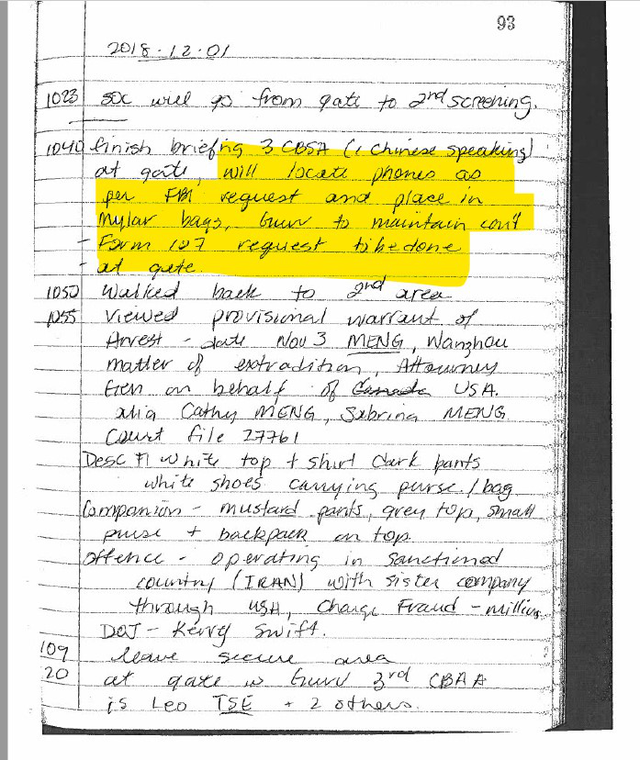 93
2018.12.01
1023 SOC will go from gate to 2nd screening.
1040 finish briefing 3 CBSA (1 Chinese speaking)
at gate, will locate phones as
per FBI request and place in
mylar bags, to maintain
- Form 127 request to be done
- at gate.
1050 Walked back to 2nd area
1055 Viewed provisional warrant of
Arrest - date Nov 3 MENG, Wanzhou
matter of extradition, Attourney
Gen on behalf of Canada USA.
alia Cathy MENG, Sabrina MENG
Court file 27761
Desc Fl White top + shirt dark pants
white shoes carrying purse/bag
Companion - mustard pants, grey top, small
purse + backpack on top.
Offence - operating in Sanctioned
country (IRAN) with sister company
through USA, Charge Fraud - millions
DOJ - Kerry Swift.
109 leave secure area
20 at gate 3rd CBAA
is Leo TSE + 2 others.